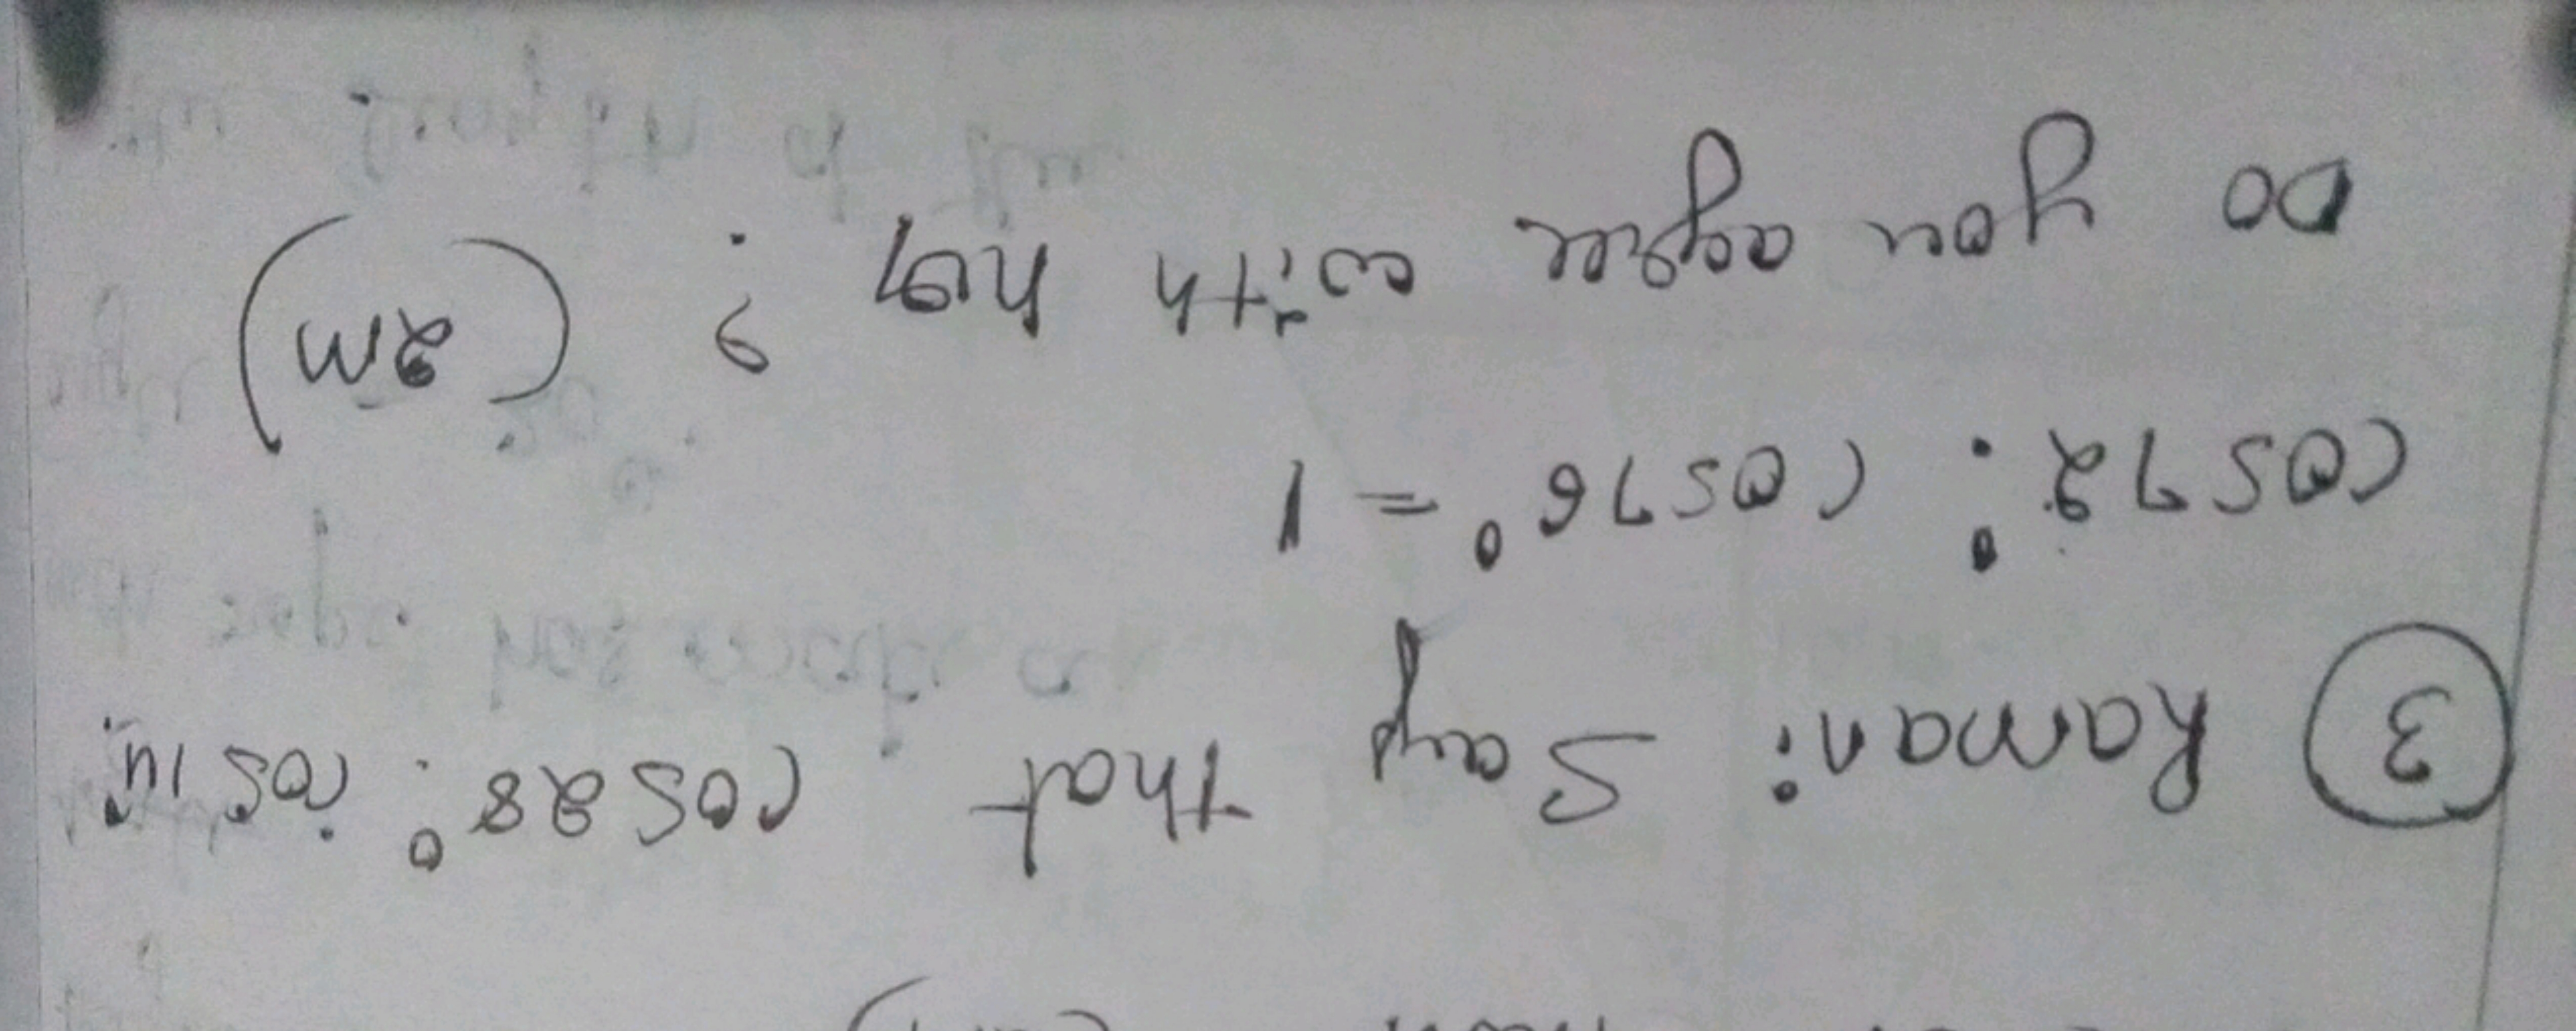 ③ Ramani Say that cos28° : cos14°
cos72° : cos76° = 1
Do you agree with her ? (2m)